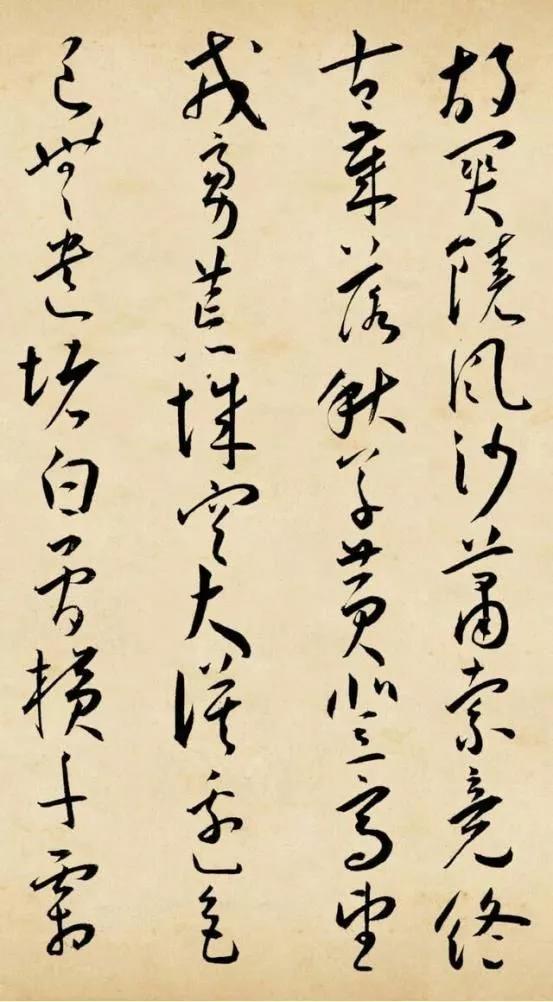 胡關饒風沙蕭索竟終
古葉落秋草黃登高望
戎虜荒城空大漠邊邑
已無遺堵白骨橫千霜